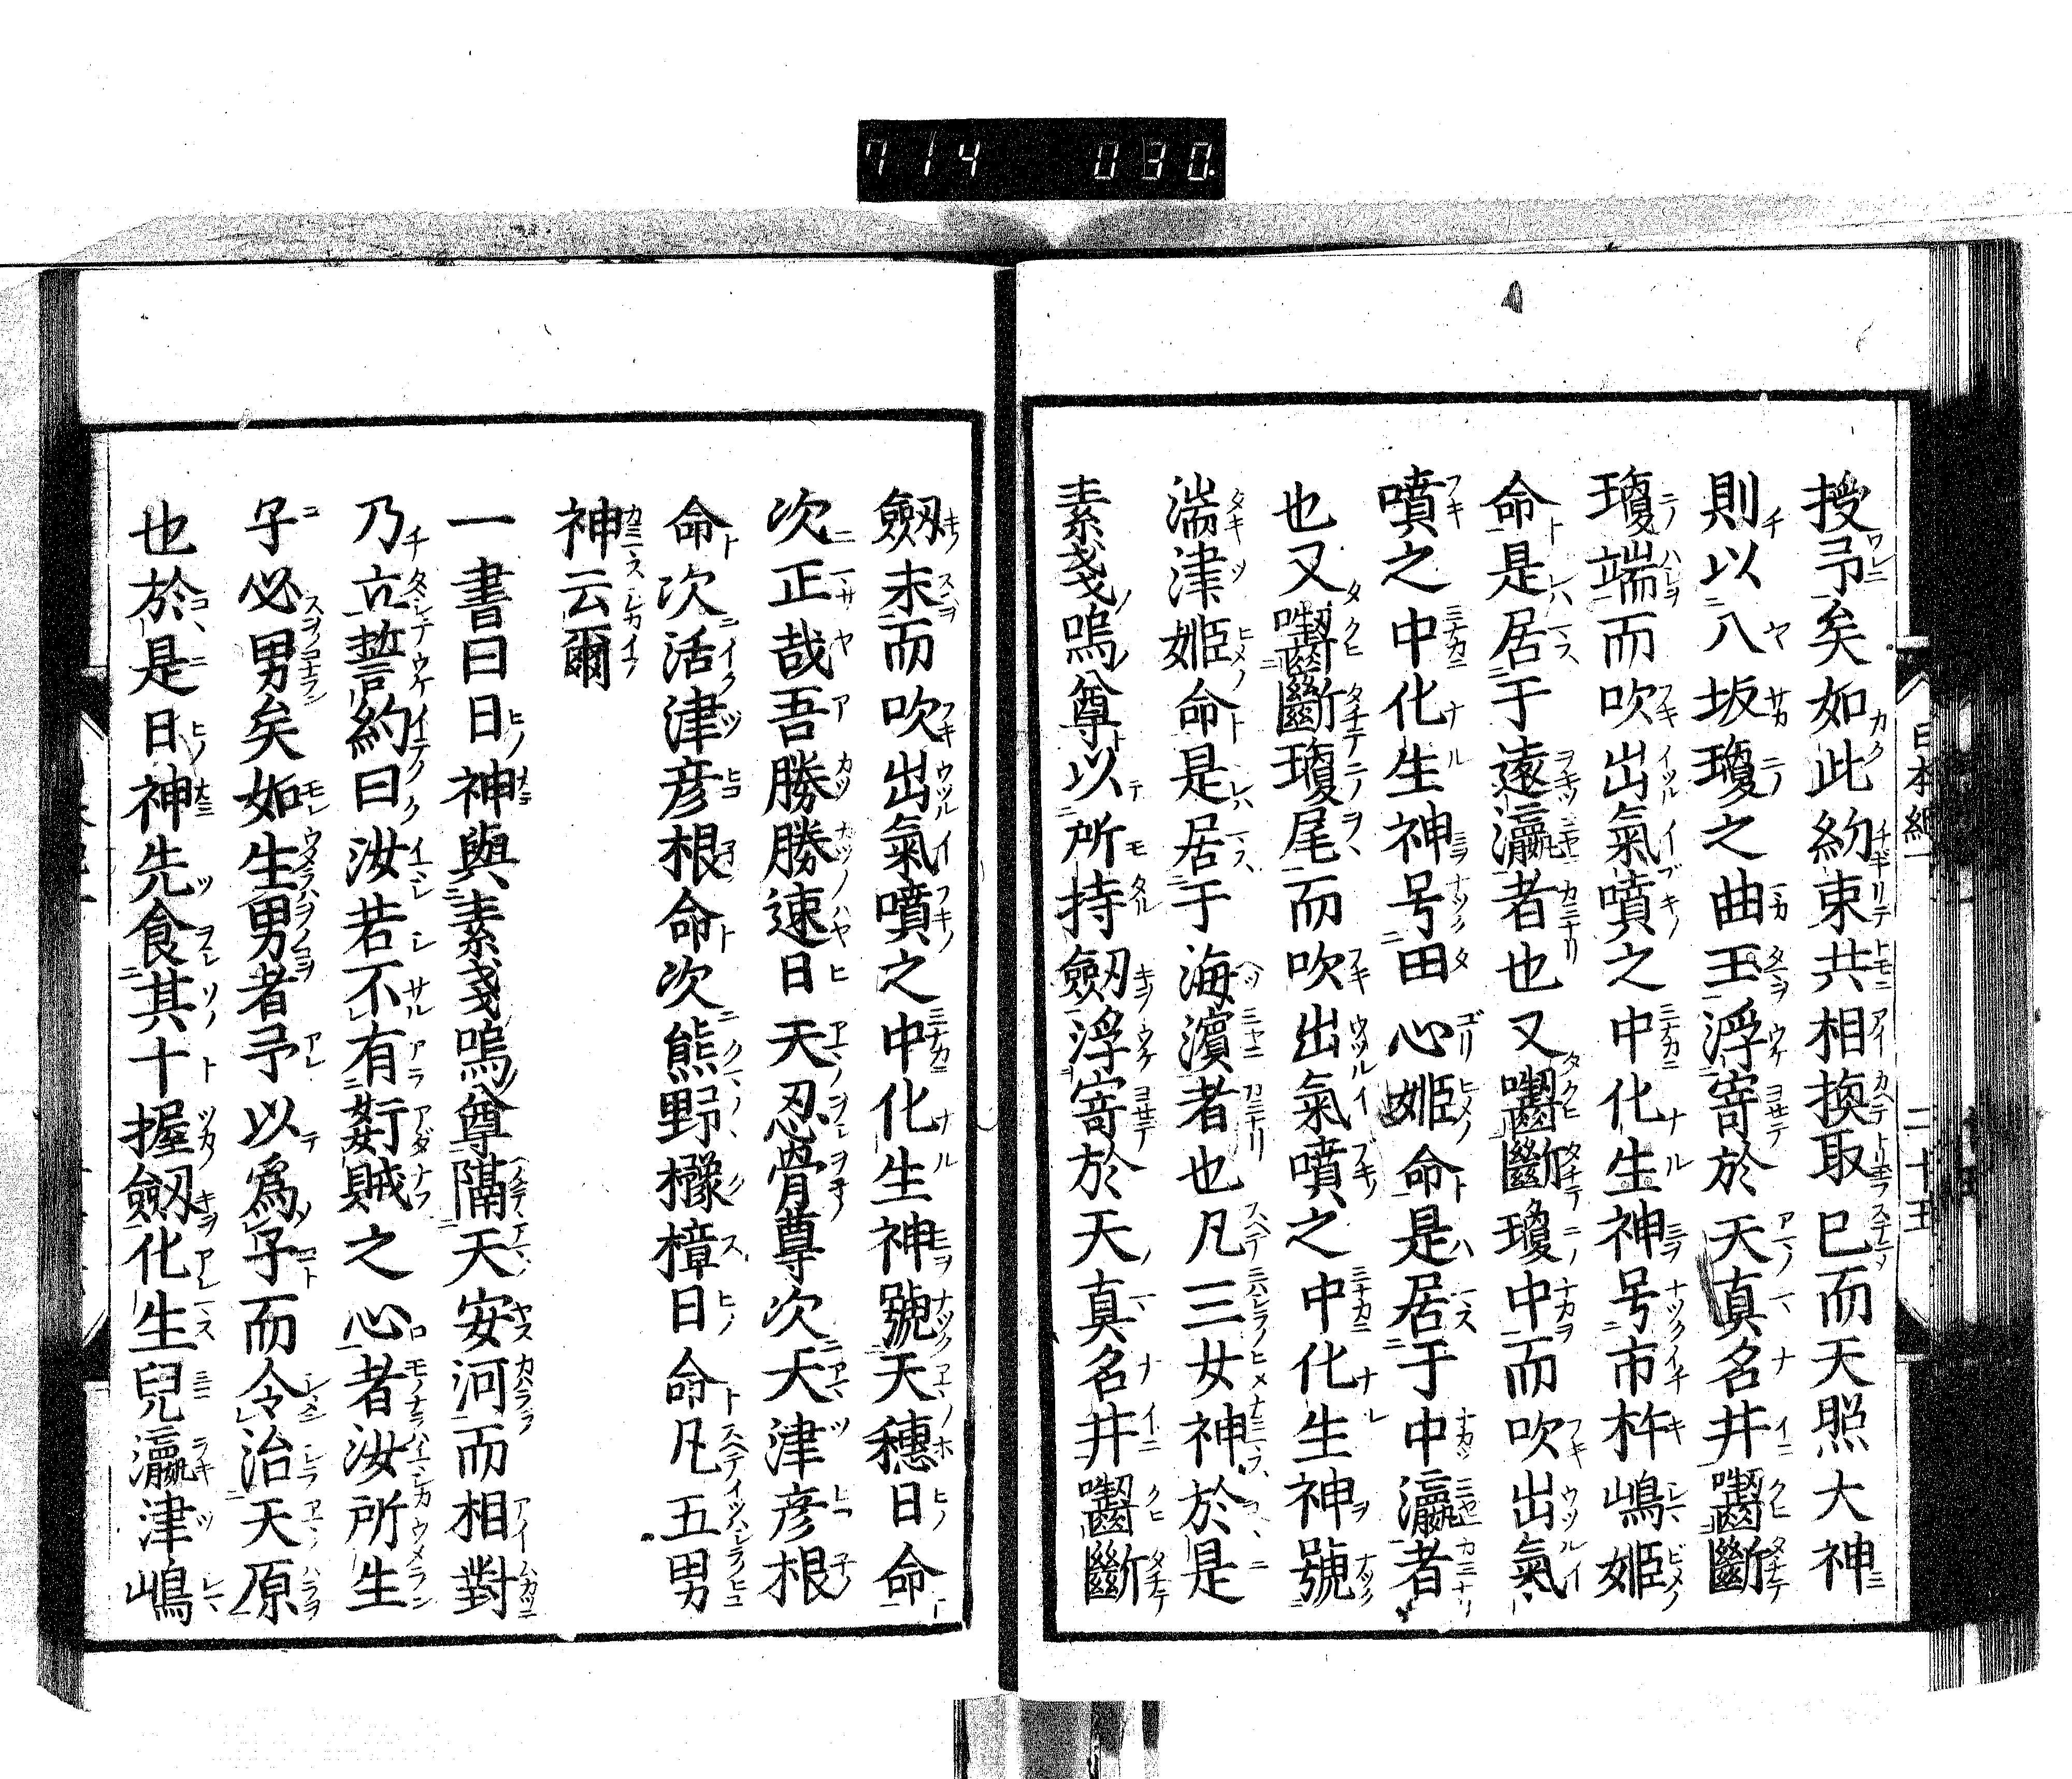 714 030.
日本紀一 二十五
授予矣如此約束共相換取已而天照大神
則以八坂瓊之曲玉浮寄於天真名井齧斷
瓊端而吹出氣噴之中化生神号市杵嶋姬
命是居于遠瀛者也又齧斷瓊中而吹出氣
噴之中化生神号田心姬命是居于中瀛者
也又齧斷瓊尾而吹出氣噴之中化生神號
湍津姬命是居于海濵者也凡三女神於是
素戔嗚尊以所持劔浮寄於天真名井齧斷
劔末而吹出氣噴之中化生神號天穗日命
次正哉吾勝勝速日天忍骨尊次天津彦根
命次活津彦根命次熊野櫲樟日命凡五男
神云爾
一書曰日神與素戔嗚尊隔天安河而相對
乃立誓約曰汝若不有姧賊之心者汝所生
子必男矣如生男者予以爲子而令治天原
也於是日神先食其十握劔化生兒瀛津嶋